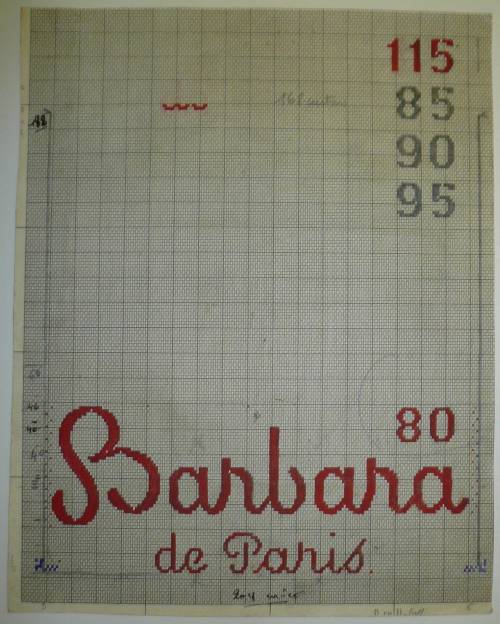 115
85
90
95
80
Barbara
de Paris.